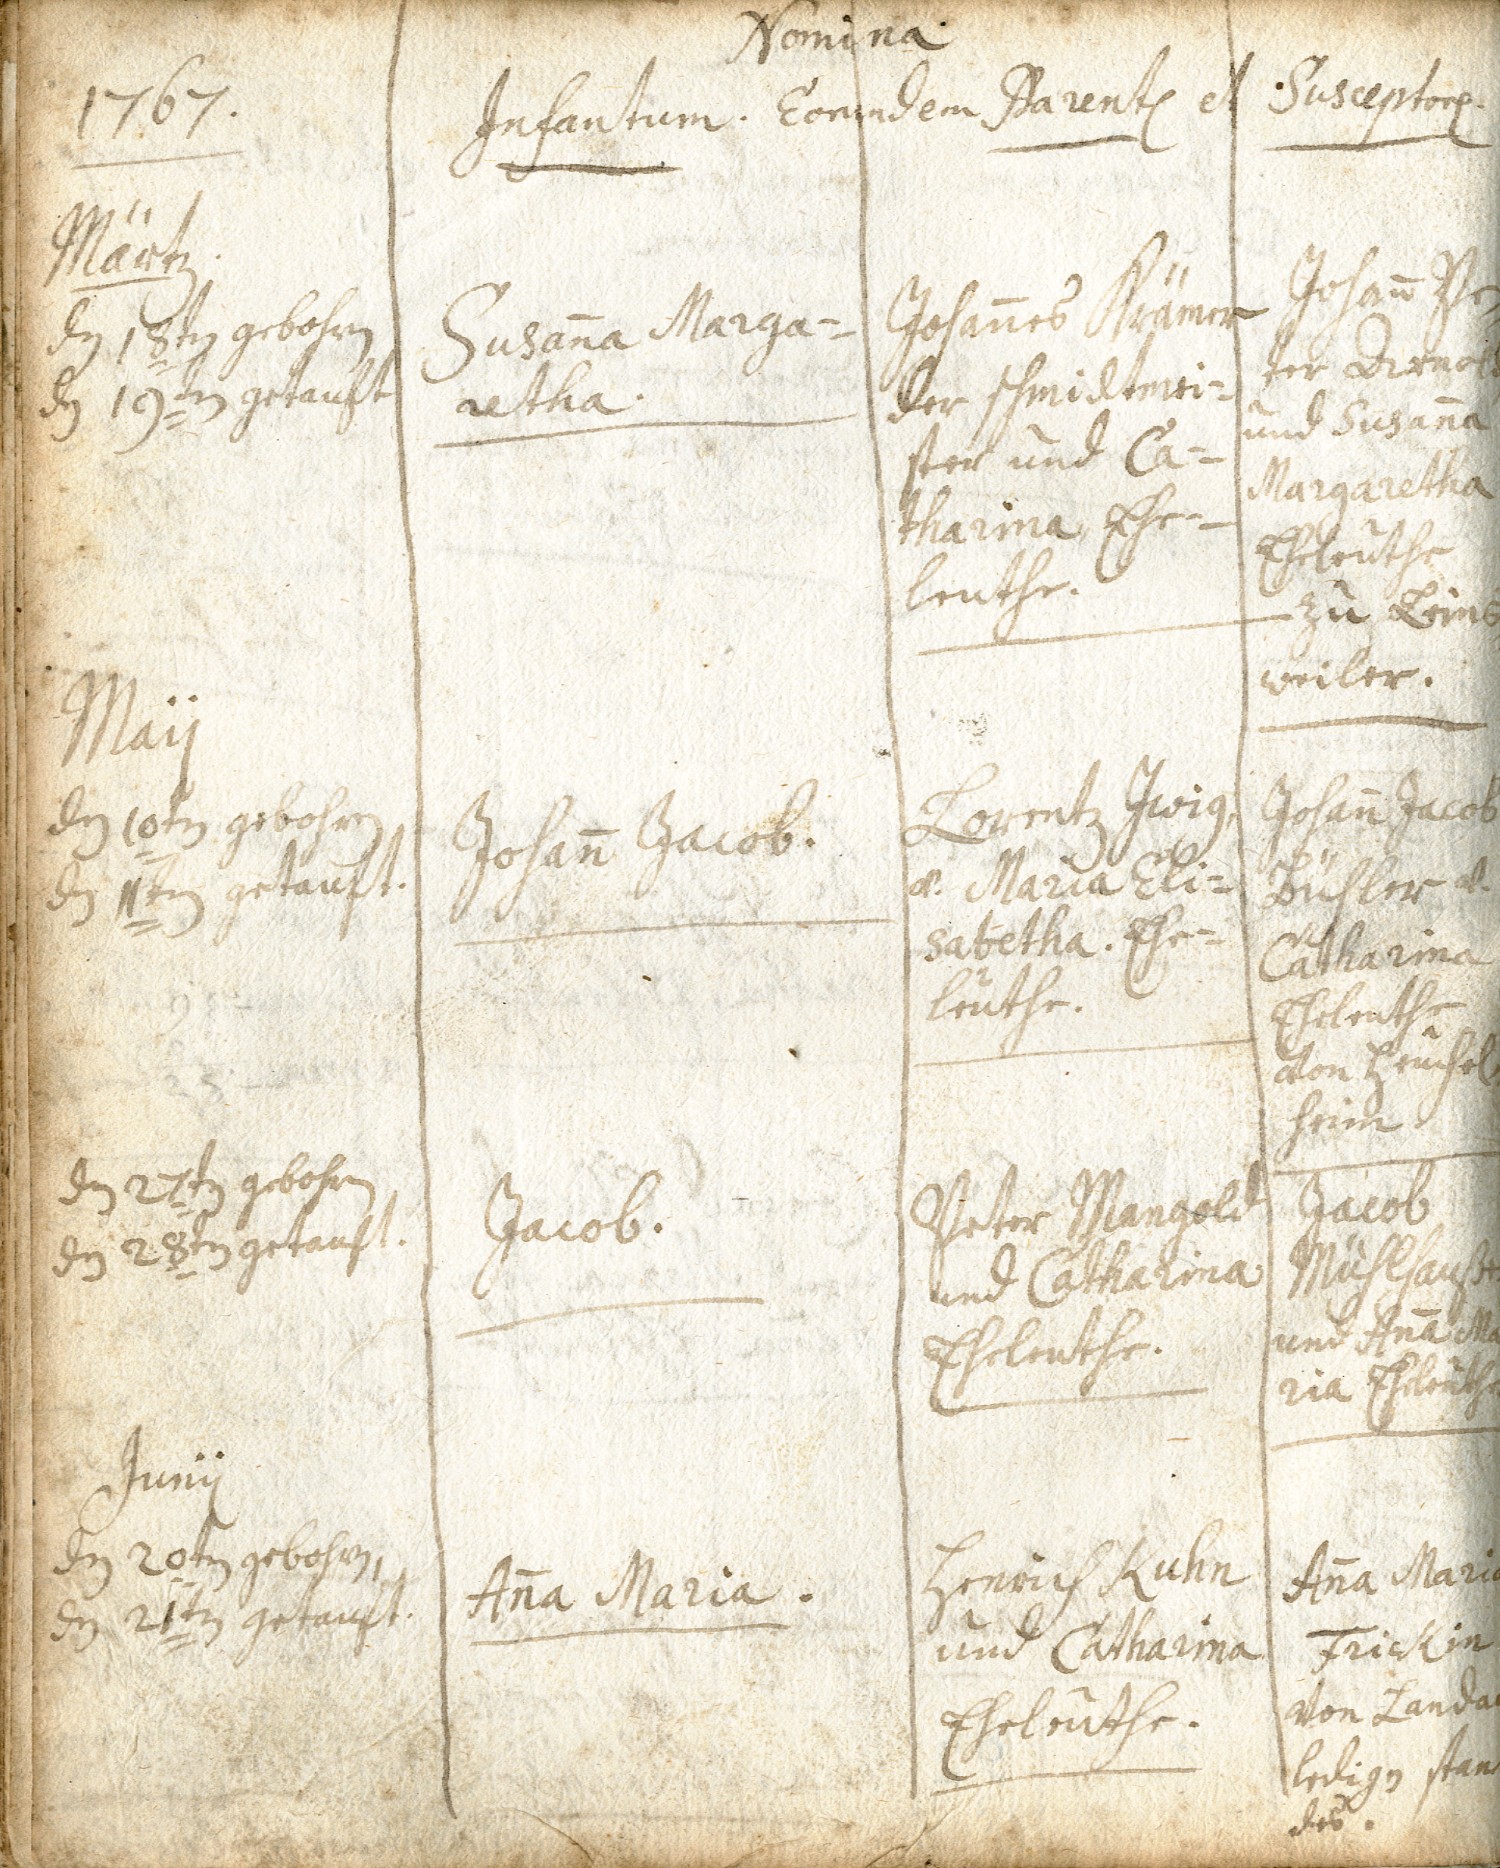 Nomina
1767.
Infantum. Eorundem Parent. et Susceptor.
Märtz.
den 18ten gebohren
den 19ten getauft
Susanna Marga=
retha.
Johannes Krämer
der schmidtmei=
ster und Ca=
tharina Ehe=
leuthe.
Johann Pe
ter Arnold
und Susanna
Margaretha
Eheleuthe
zu Leins
weiler.
Maij
den 10ten gebohren
den 11ten getauft.
Johann Jacob.
Lorentz
u. Maria Eli=
sabetha. Ehe=
leuthe.
Johann Jacob
Bühler u.
Catharina
Eheleuthe
von Heuchel
heim
den 27ten gebohren
den 28ten getauft.
Jacob.
Peter Mangold
und Catharina
Eheleuthe.
Jacob
Mühlhauser
und Anna Ma
ria Eheleuthe
Junij
den 20ten gebohren,
den 21ten getauft.
Anna Maria.
Henrich Kuhn
und Catharina
Eheleuthe.
Anna Maria
Frickin
von Landau
ledigen stan
des.